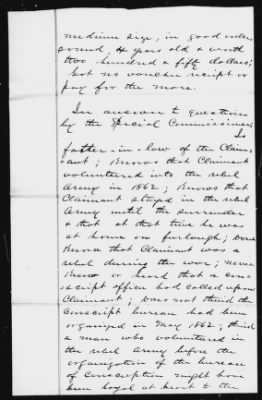 medium size, in good order,
sound, 4 years old & worth
two hundred & fifty dollars;
got no voucher receipt or
pay for the mare.
In answer to questions
by the Special Commissioner,
Is
father-in-law of the Claim-
ant; Knows that Claimant
volunteered into the rebel
Army in 1862; Knows that
Claimant stayed in the rebel
Army until the surrender
& that at that time he was
at home on furlough; Don't
Know that Claimant was a
rebel during the war; never
Knew or heard that a con-
script officer had called upon
Claimant; Does not think the
Conscript bureau had been
organized in May 1862; think
a man who volunteered in
the rebel Army before the
organization of the bureau
of Conscription might have
been loyal at heart to the